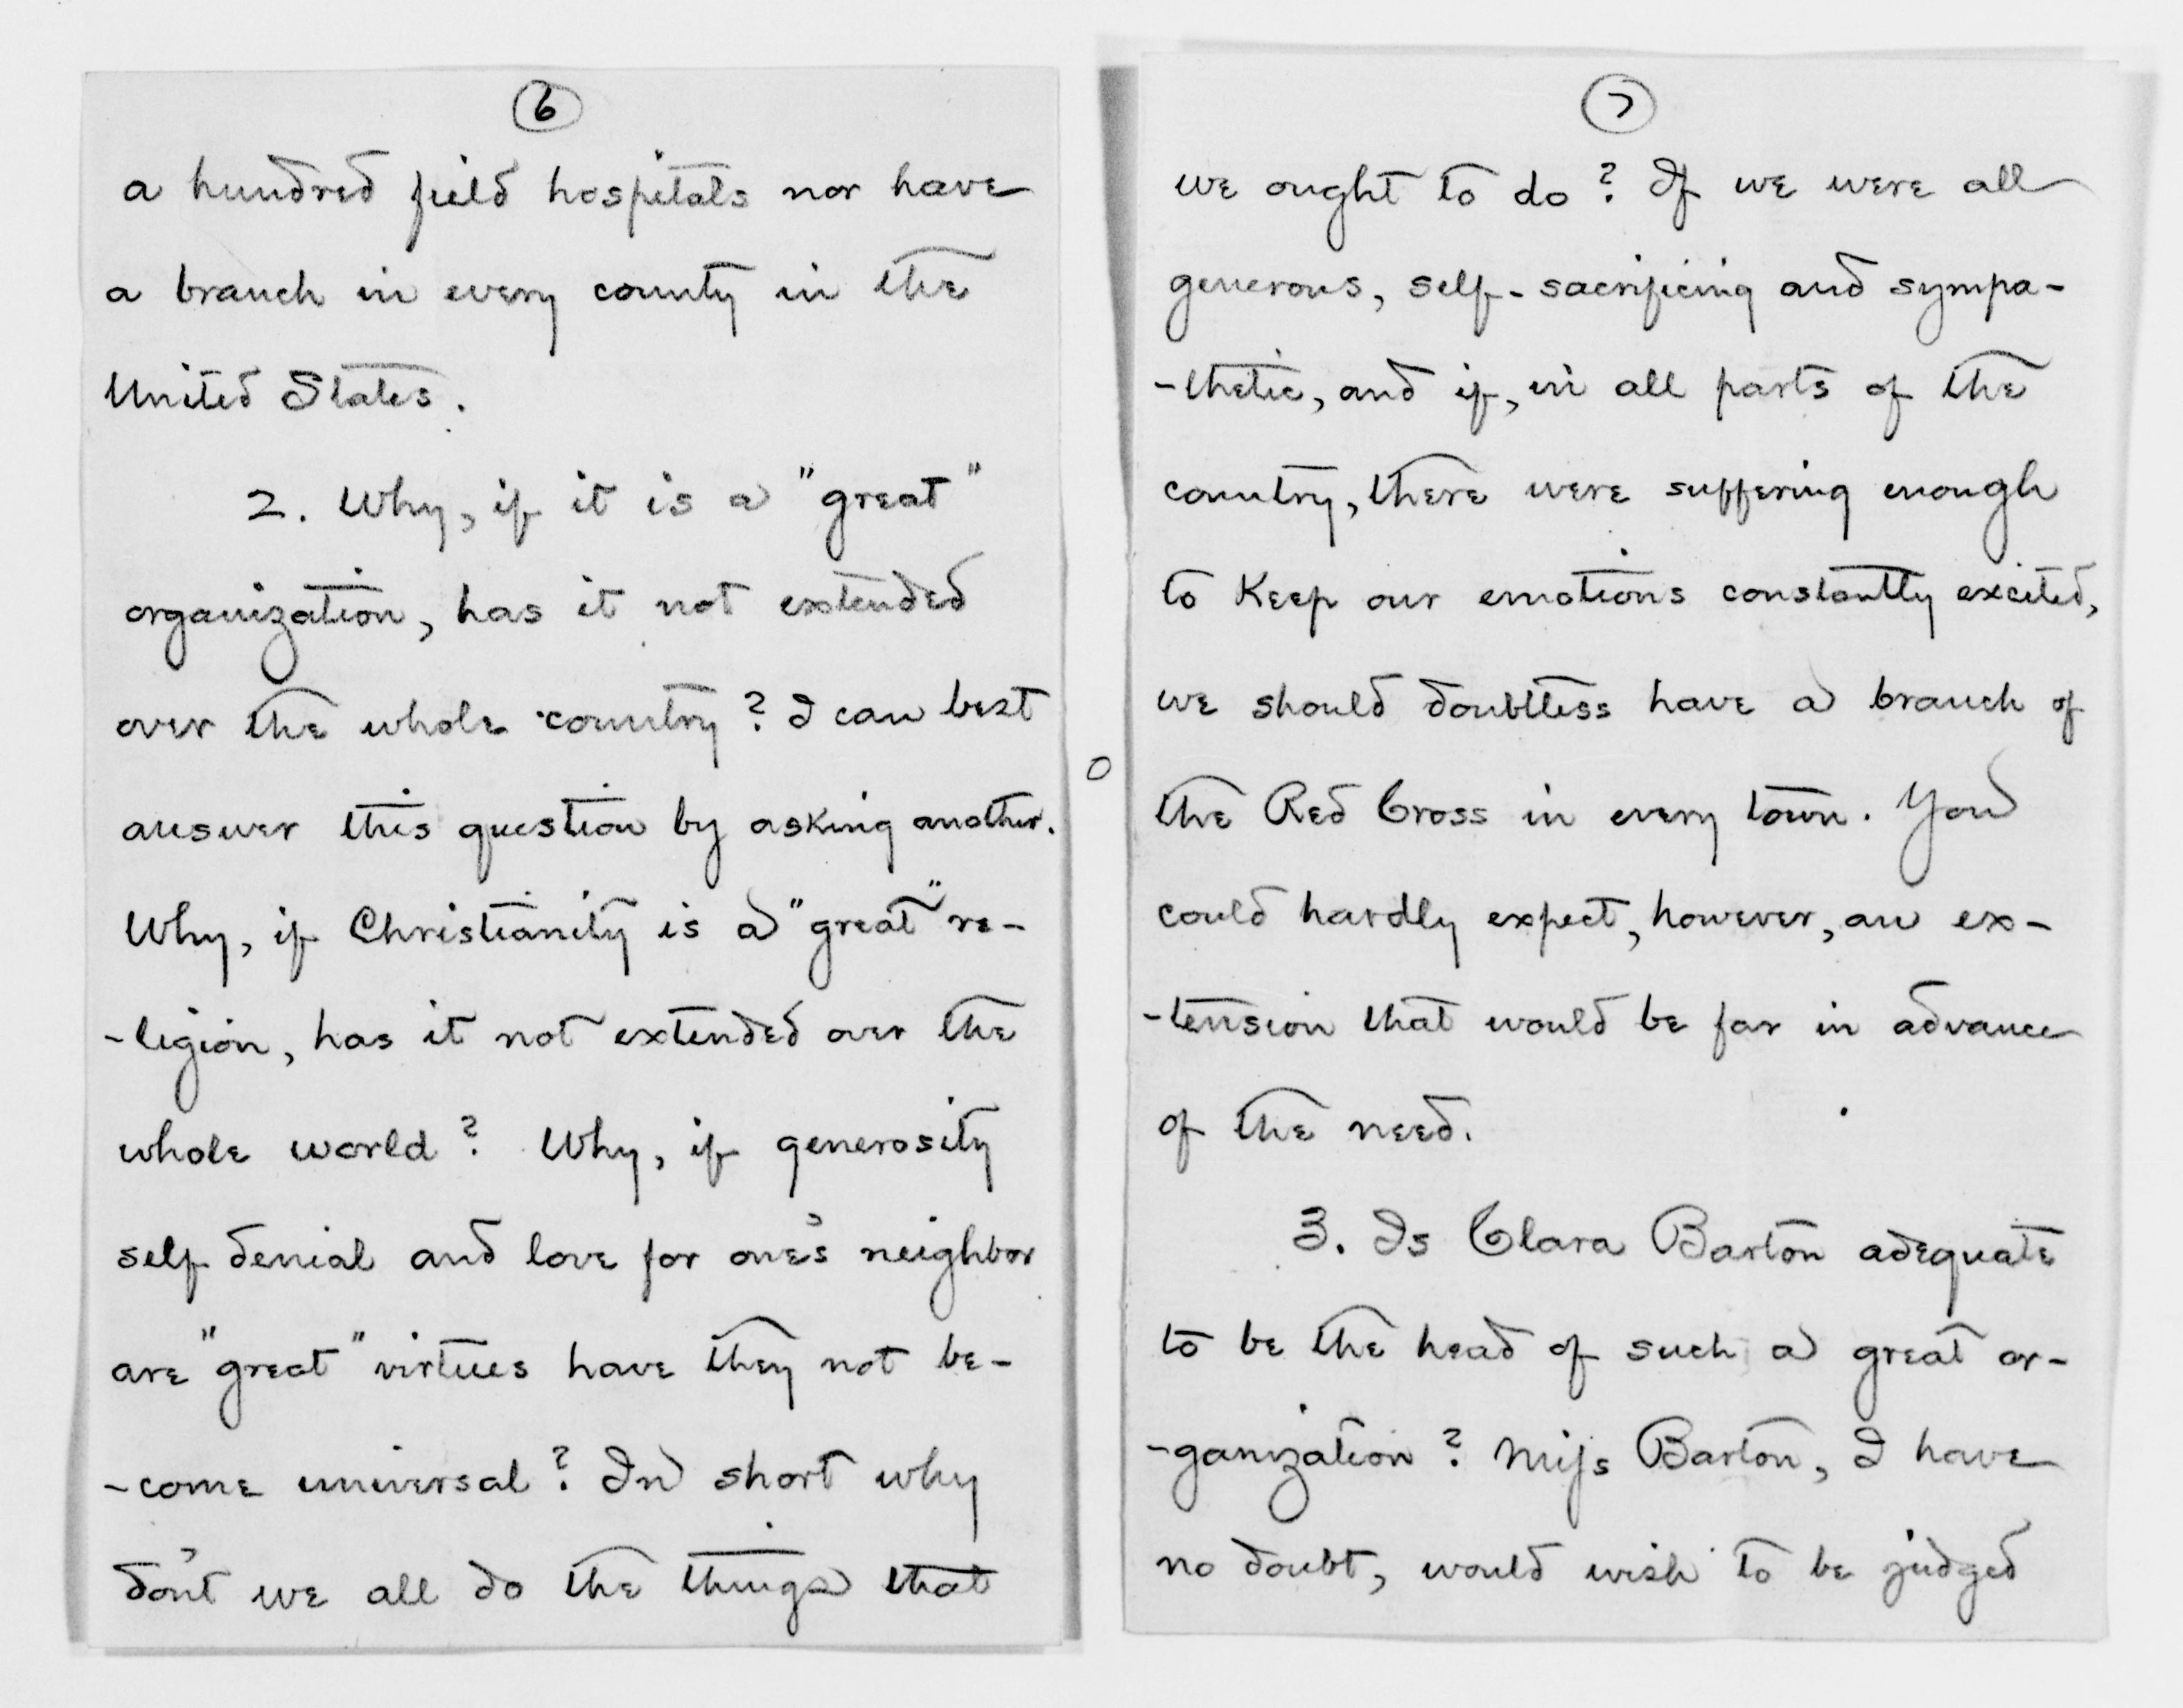 6
a hundred field hospitals nor have
a branch in every county in the
United States.
2. Why, if it is a "great"
organization, has it not extended
over the whole country? I can best
answer this question by asking another.
Why, if Christianity is a "great" re-
-ligion, has it not extended over the
whole world? Why, if generosity
self denial and love for one's neighbor
are "great" virtues have they not be-
-come universal? In short why
don't we all do the things that
7
we ought to do? If we were all
generous, self-sacrificing and sympa-
-thetic, and if, in all parts of the
country, there were suffering enough
to keep our emotions constantly excited,
we should doubtless have a branch of
the Red Cross in every town. You
could hardly expect, however, an ex-
-tension that would be far in advance
of the need.
3. Is Clara Barton adequate
to be the head of such a great or-
-ganization? Miss Barton, I have
no doubt, would wish to be judged